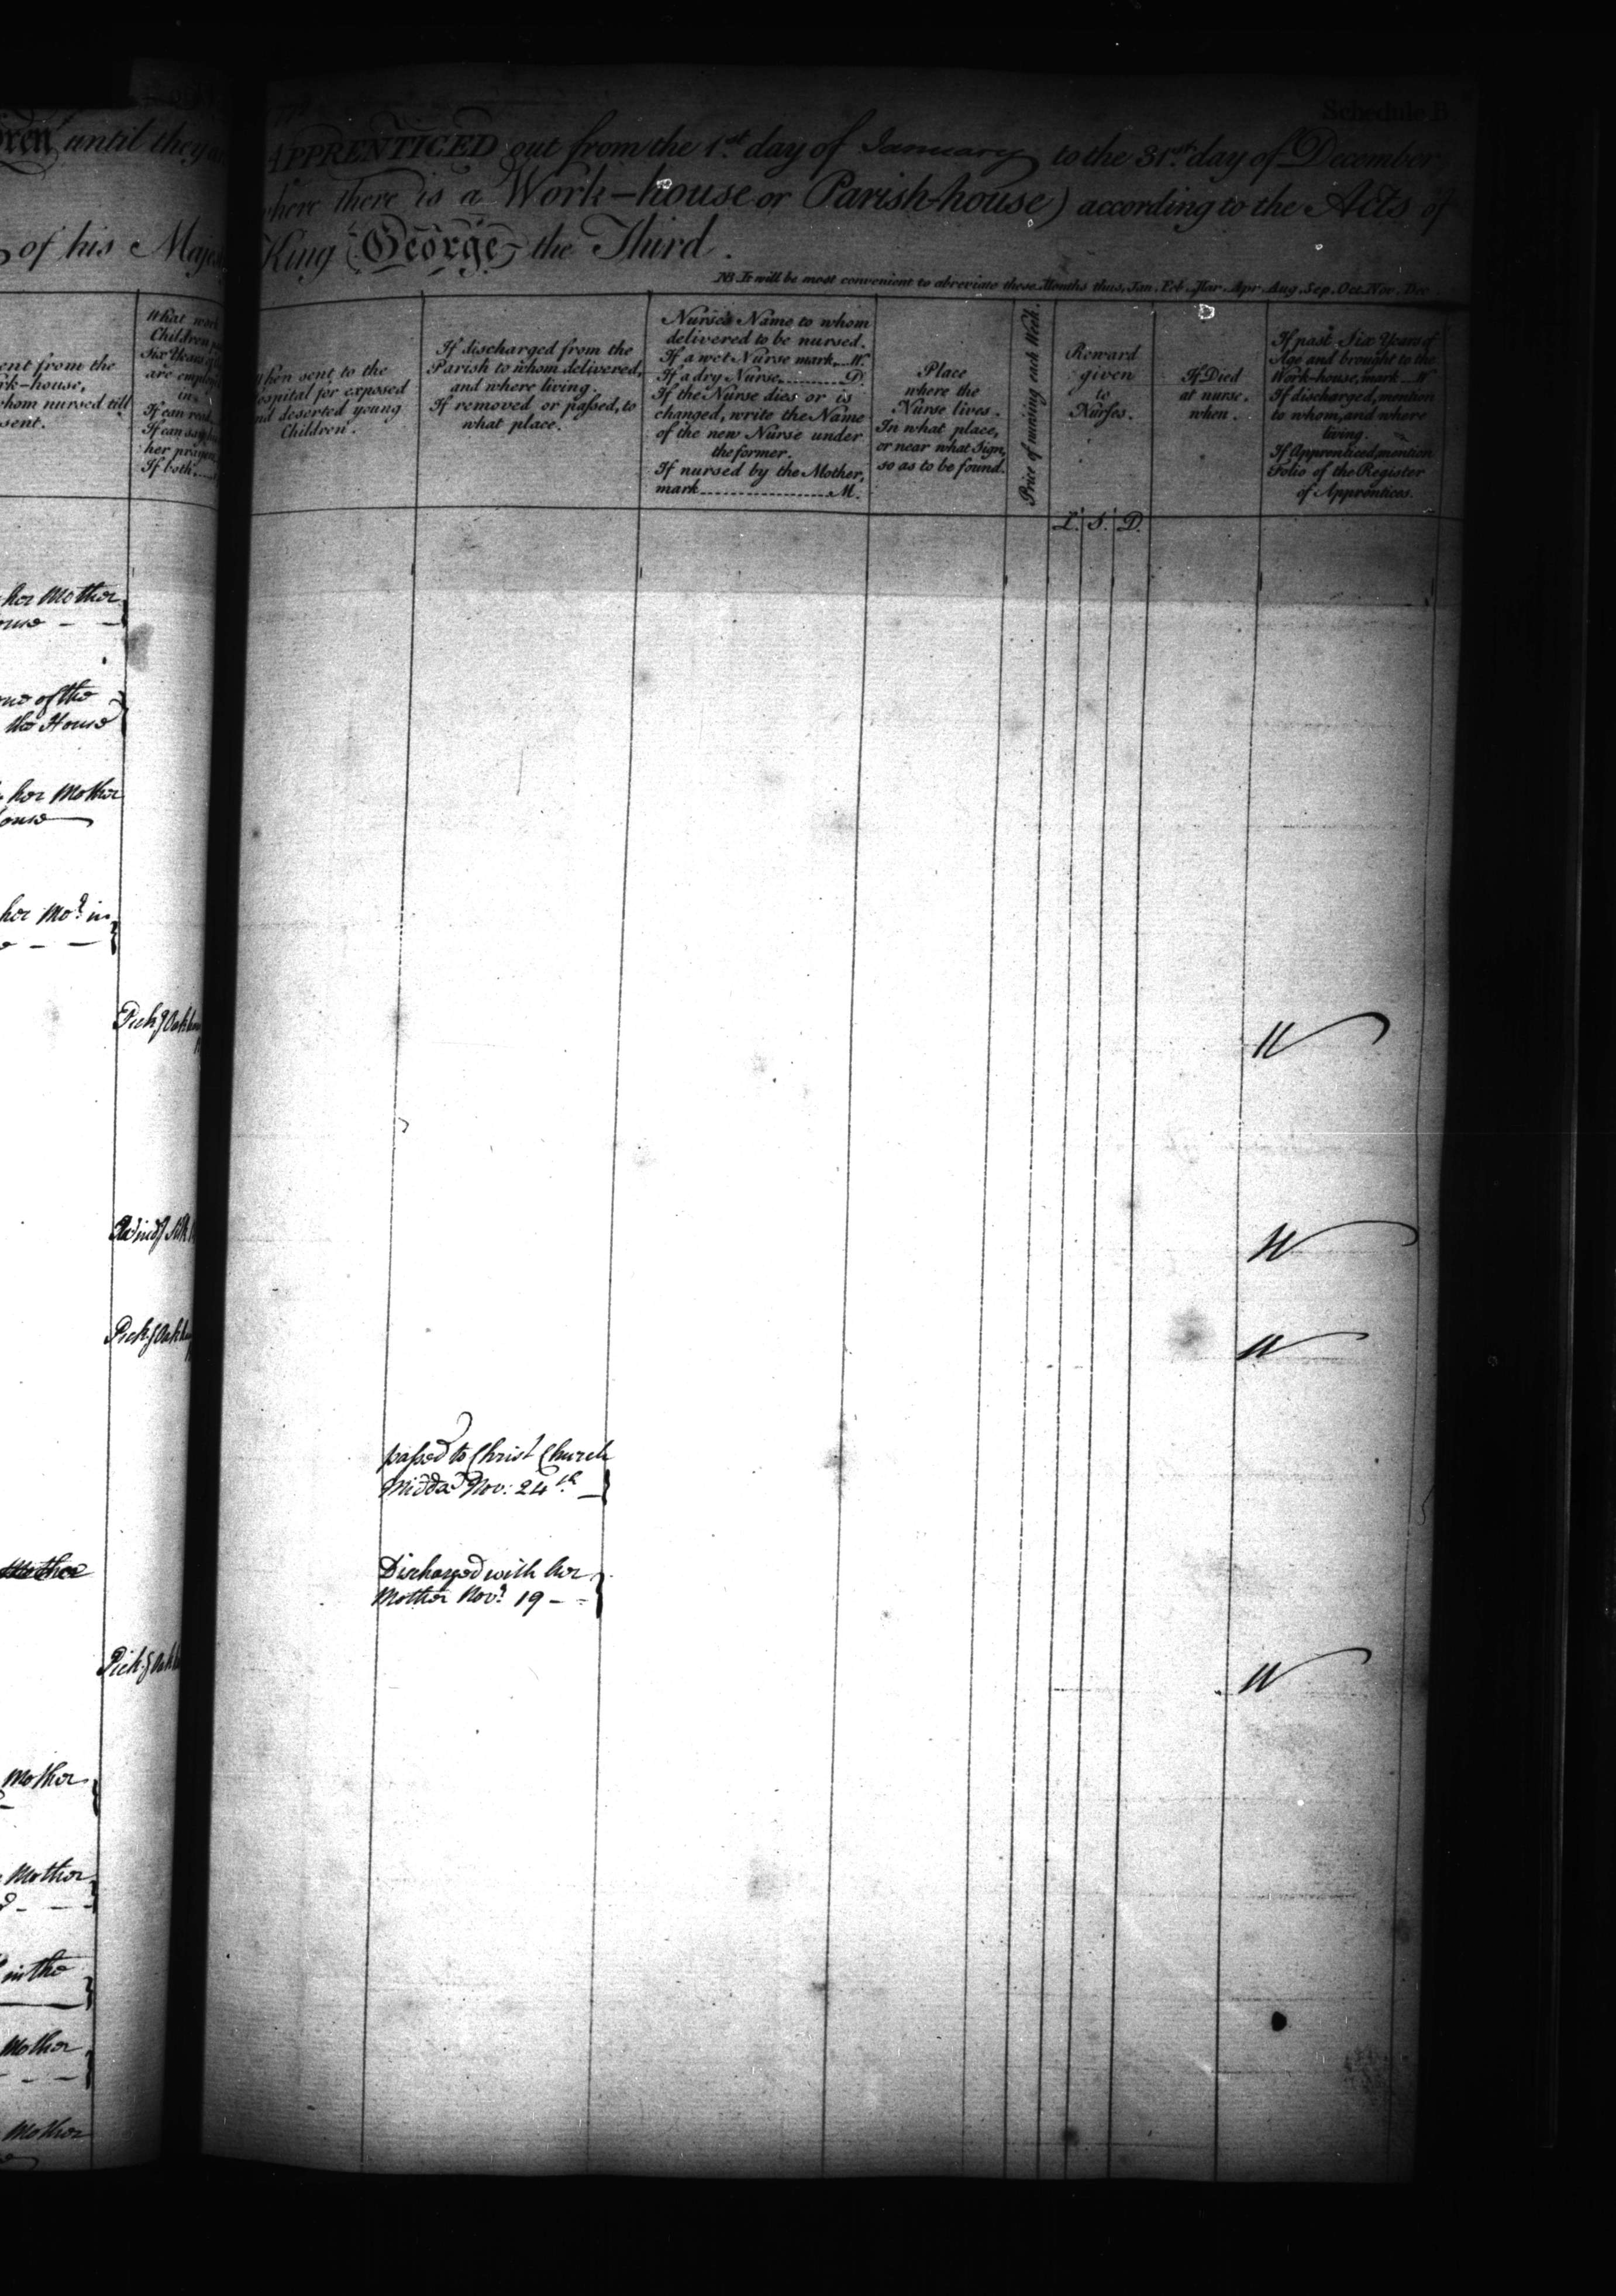 until they
of his
ent from the
rk-house,
whom nursed till
sent.
What work
Children
Six Years
are employ
in
If can read
If can say
her prayers
If both
her Mother
ouse - -
one of the
the House
her Mother
ouse
her Mo.r in
- -
Pick.g Oakum
Wind.g Silk
Pick.g Oakum
Mother
Pick.g Oakum
Mother
Mother
in the
Mother
Mother
Schedule B
APPRENTICED out from the 1.st day of January to the 31.st day of December
where there is a Work-house or Parish-house) according to the Acts of
King George the Third.
NB. It will be most convenient to abreviate these Months thus, Jan. Feb. Mar. Apr. Aug. Sep. Oct. Nov. Dec.
When sent to the
Hospital for exposed
and deserted young
Children.
If discharged from the
Parish to whom delivered,
and where living.
If removed or passed, to
what place.
Nurse's Name to whom
delivered to be nursed.
If a wet Nurse mark....W.
If a dry Nurse............D.
If the Nurse dies or is
changed, write the Name
of the new Nurse under
the former.
If nursed by the Mother,
mark..................M.
Place
where the
Nurse lives.
In what place,
or near what Sign,
so as to be found.
Price of nursing each Week.
Reward
given
to
Nurses.
L. S. D.
If Died
at nurse.
when.
If past Six Years of
Age and brought to the
Work-house, mark W
If discharged, mention
to whom, and where
living.
If Apprenticed, mention
Folio of the Register
of Apprentices.
W
W
W
passed to Christ Church
Midd.x Nov: 24th
Discharged with her
Mother Nov.r 19 - -
W